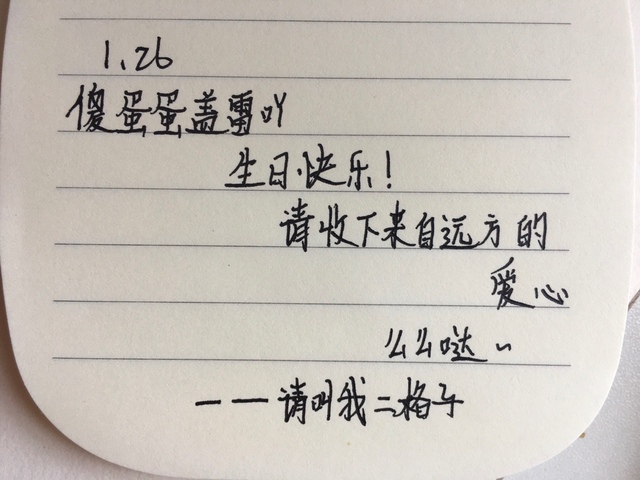 1.26
傻蛋蛋盖雷吖
生日快乐!
请收下来自远方的
爱心
么么哒~
——请叫我二格子